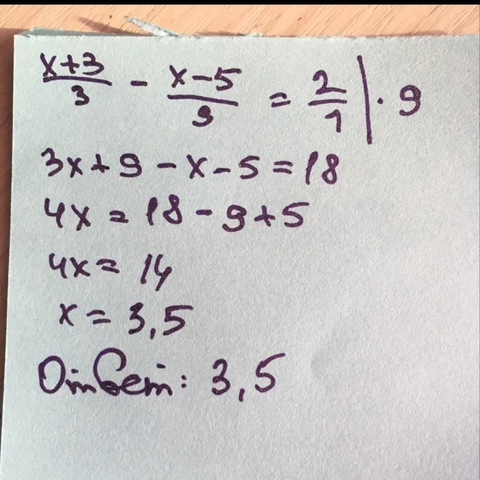 (x+3)/3 - (x-5)/9 = 2/1 | · 9
3x+9-x-5=18
4x=18-9+5
4x=14
x=3,5
Ответ: 3,5